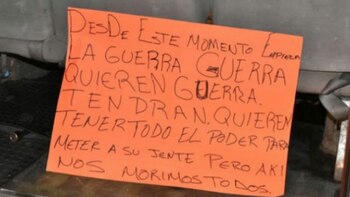 DESDE ESTE MOMENTO EMPIEZA
LA GUERRA GUERRA
QUIEREN GUERRA.
TENDRAN. QUIEREN
TENER TODO EL PODER PARA
METER A SU JENTE PERO AKI
NOS MORIMOS TODOS.